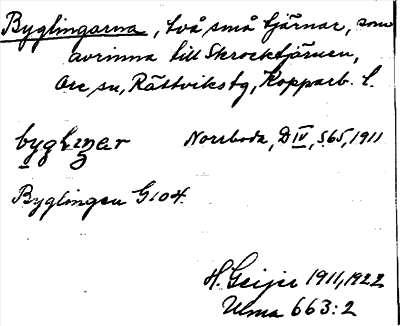 Byglingarna, två små tjärnar, som
avrinna till Skrocktjärnen,
Ore sn, Rättvikstg, Kopparb. l.
Norrboda, D IV, S65, 1911
Byglingen G104.
H. Geijer 1911, 1922
Ulma 663:2